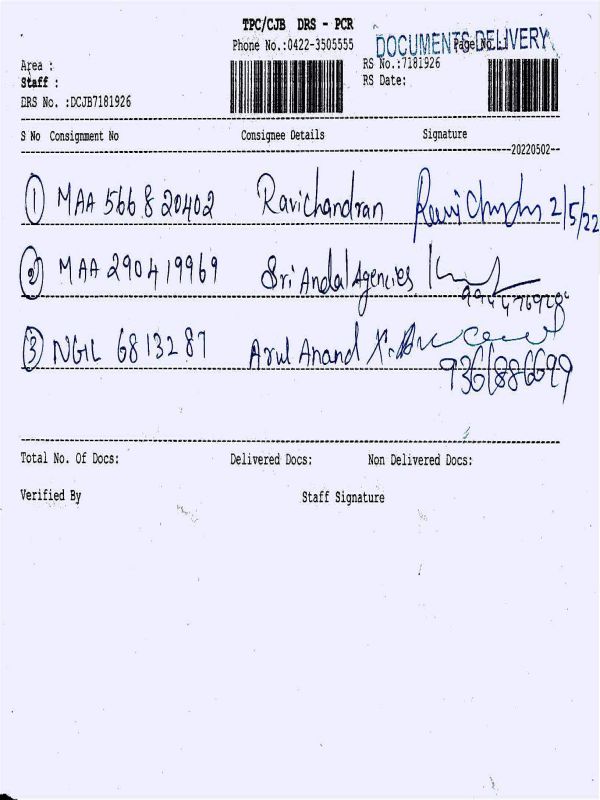 TPC/CJB DRS - PCR
Phone No.:0422-3505555
DOCUMENTS DELIVERY
Page No.:1
Area :
RS No.:7181926
Staff :
RS Date:
DRS No. :DCJB7181926
S No Consignment No Consignee Details Signature
20220502
1 MAA 566820402 Ravichandran Ravi Chandran 2/5/22
2 MAA 290419969 Sri Andal Agencies
3 NGIL 6813287 Arul Anand
Total No. Of Docs: Delivered Docs: Non Delivered Docs:
Verified By Staff Signature